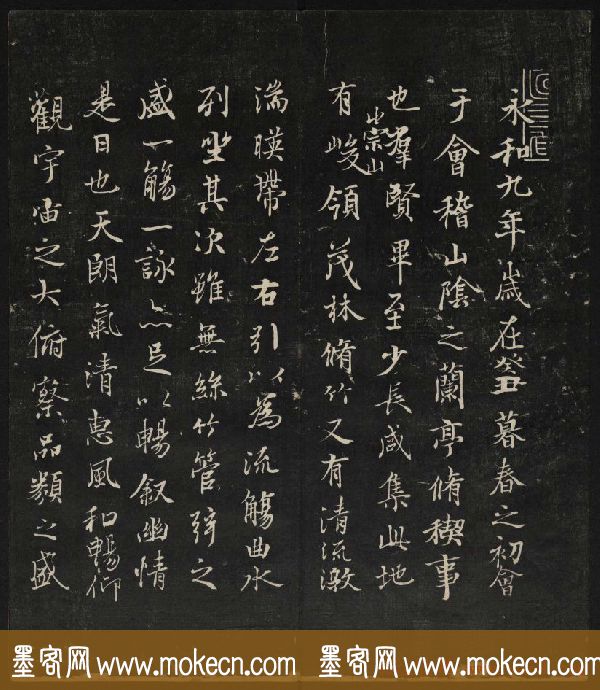 永和九年歲在癸丑暮春之初會
于會稽山陰之蘭亭脩稧事
也羣賢畢至少長咸集此地
有崇山峻領茂林脩竹又有清流激
湍暎帶左右引以為流觴曲水
列坐其次雖無絲竹管弦之
盛一觴一詠亦足以暢叙幽情
是日也天朗氣清惠風和暢仰
觀宇宙之大俯察品類之盛
墨客网 www.mokecn.com 墨客网 www.mokecn.com